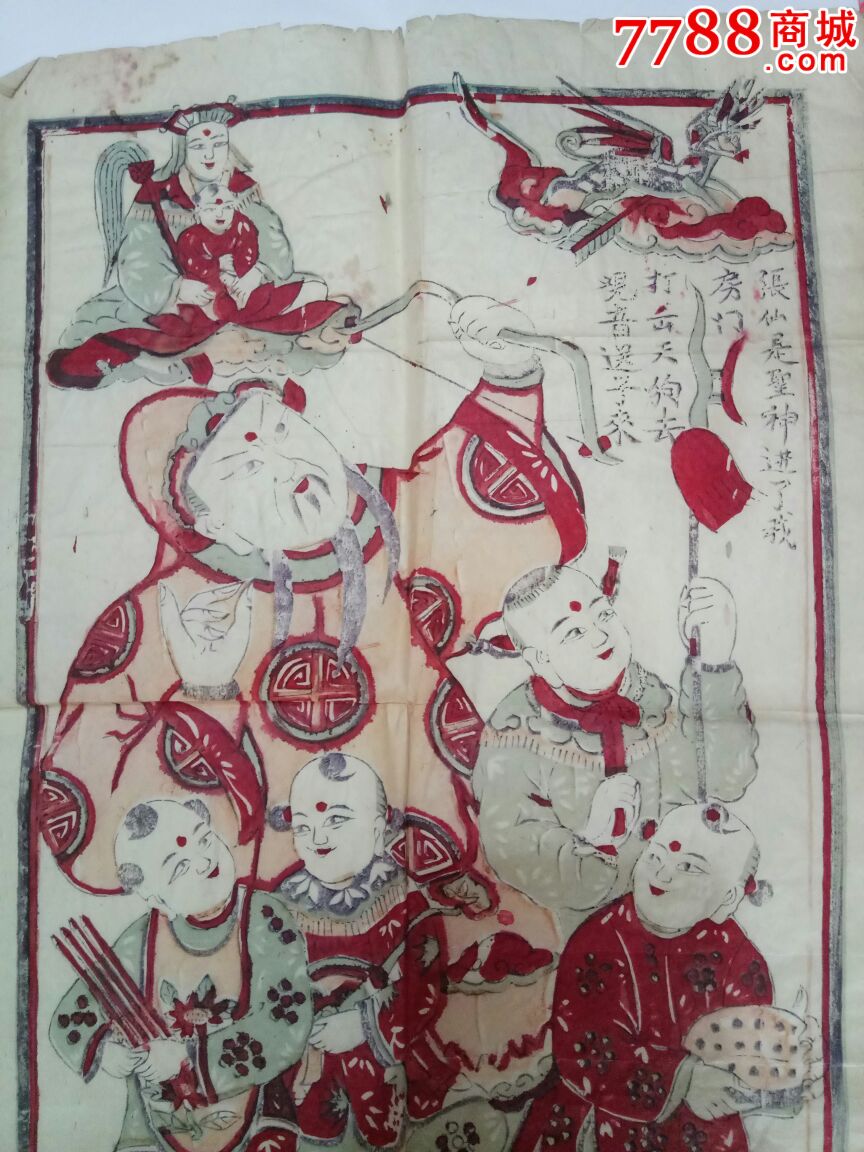 7788商城
.com
張仙是聖神进了我
房门
打出天狗去
观音送子来